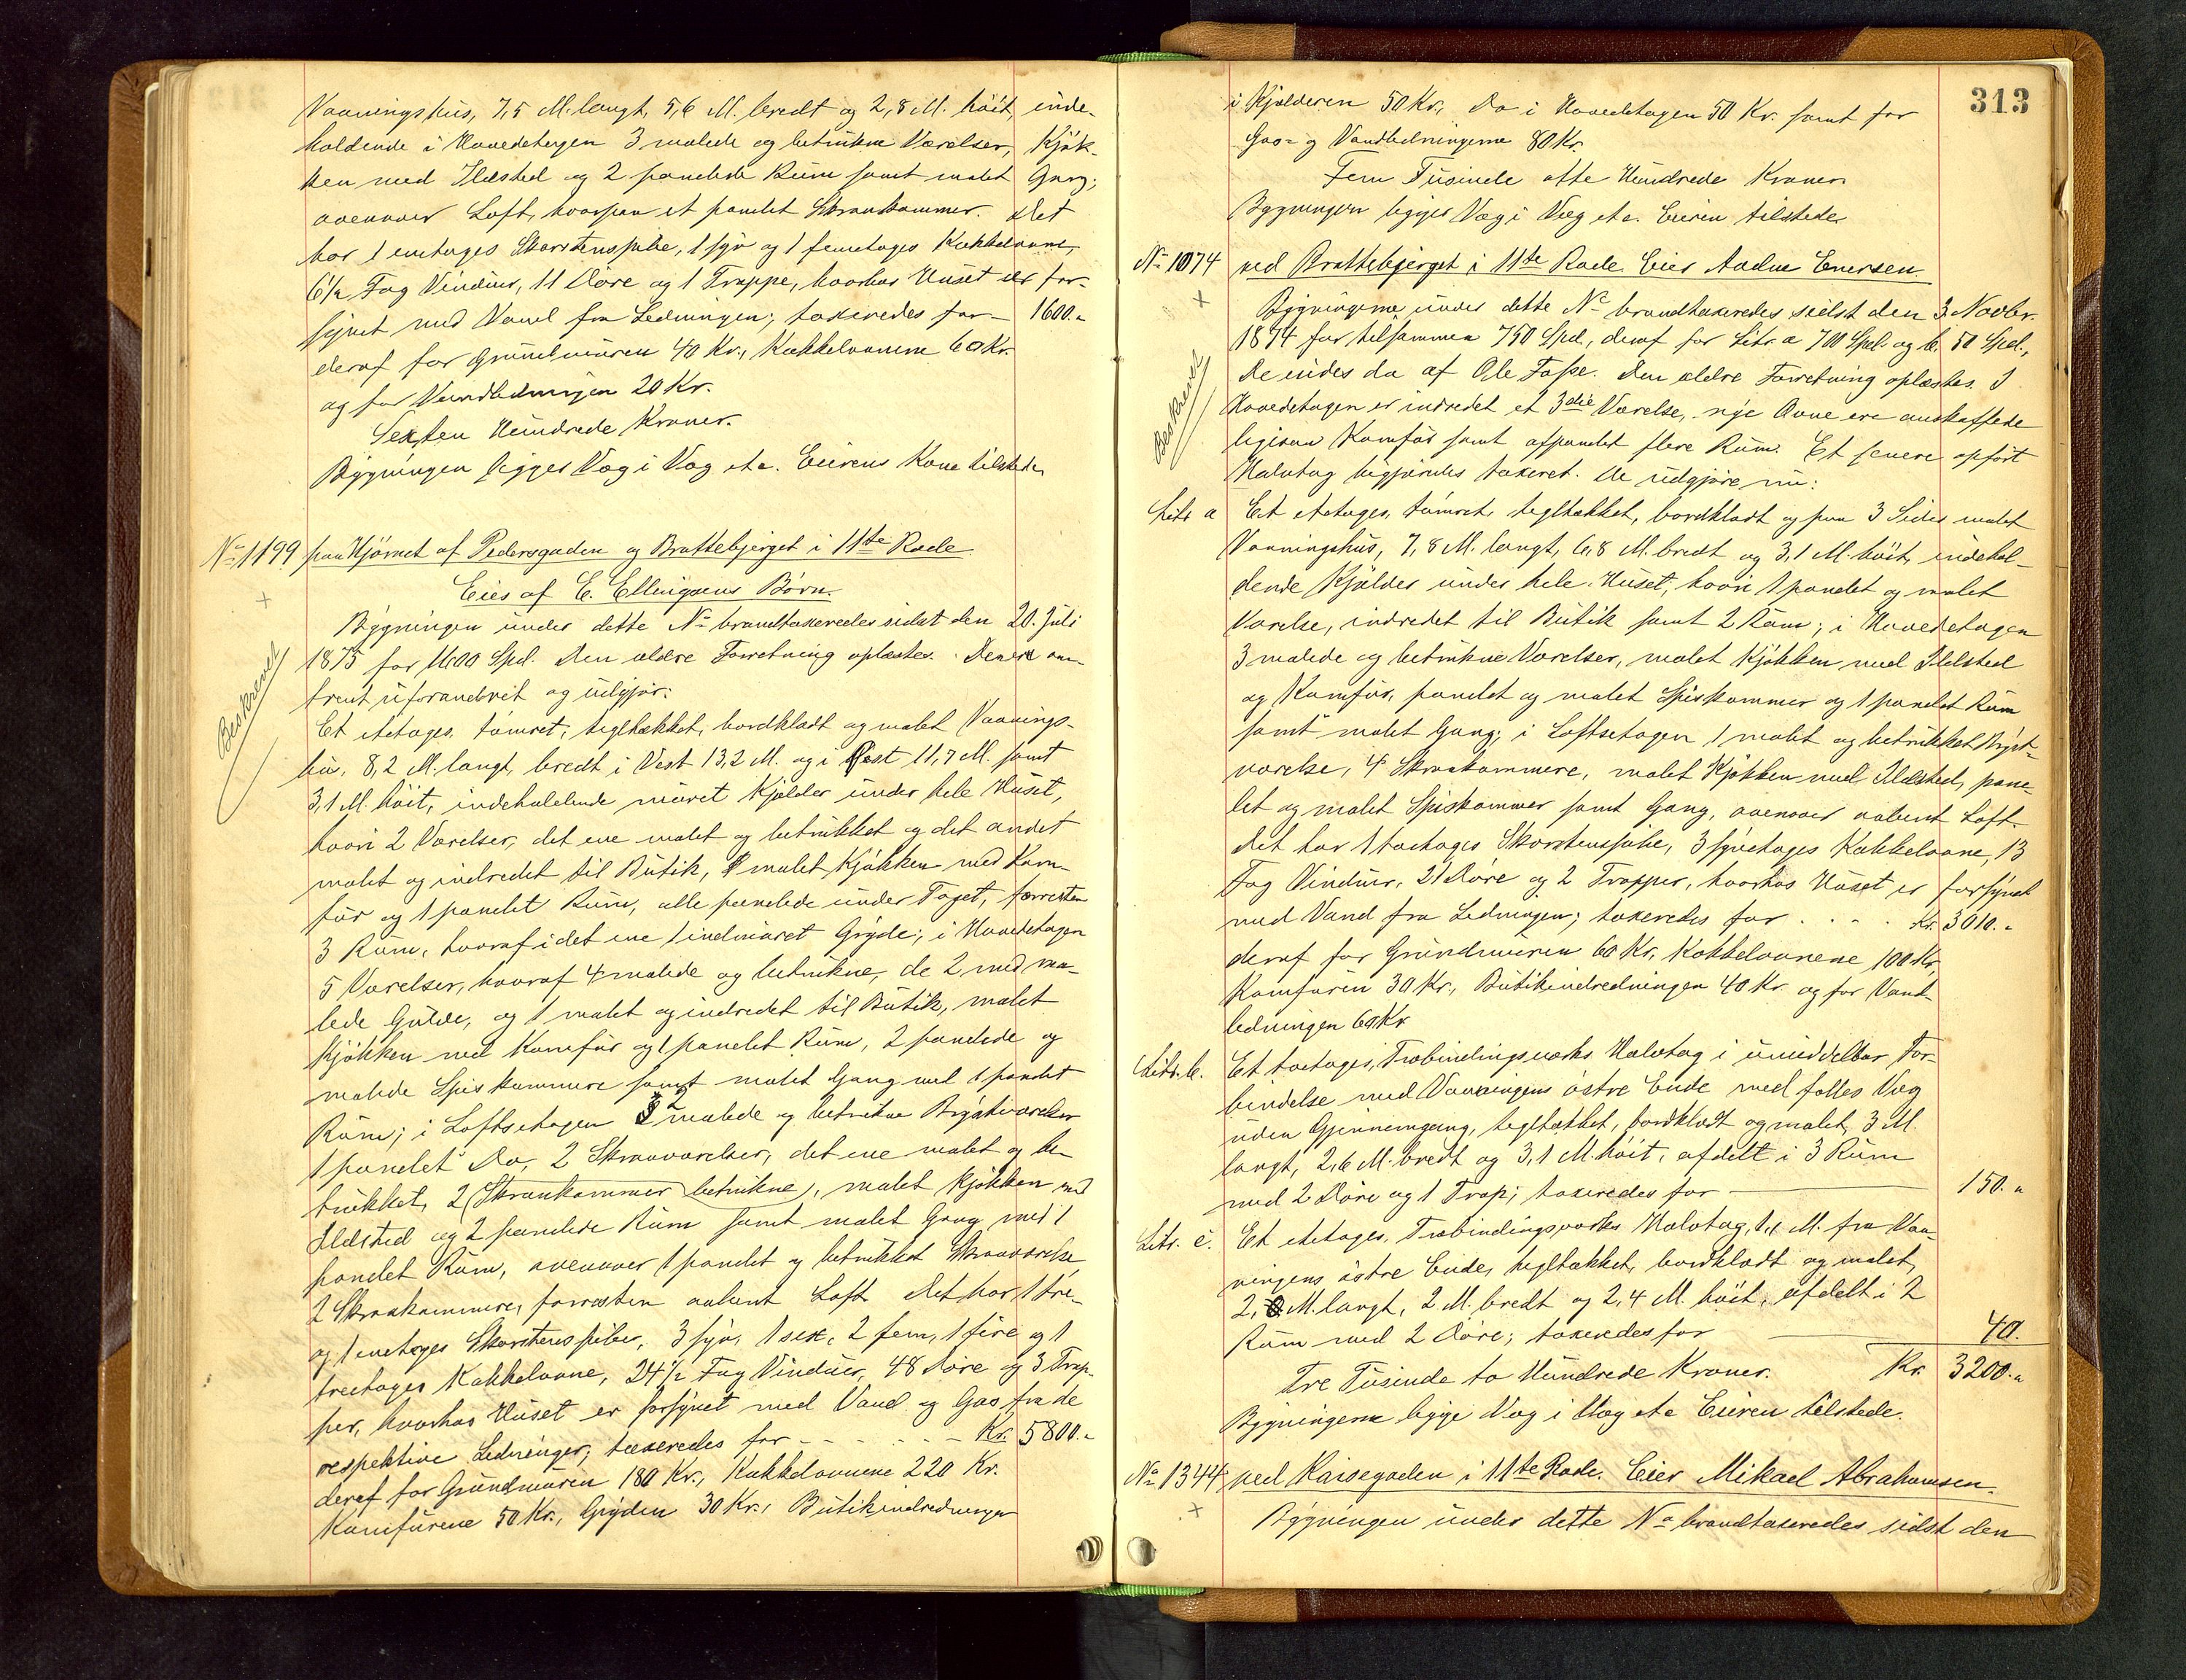 Vaaningshus, 7,5 M. langt, 5,6 M. bredt og 2,8 M. høit, inde-
holdende i Hovedetagen 3 malede og betrukne Værelser, Kjøk-
ken med Ildsted og 2 panelede Rum samt malet Gang;
ovenover Loft, hvorpaa et panelet Skraakammer. Det
har 1 enetages Skorstenspibe, 1 syv og 1 femetages Kakkelovne,
6½ Fag Vinduer, 11 Døre og 1 Trappe, hvorhos Huset er for-
synet med Vand fra Ledningen; taxeredes for — 1600.„
deraf for Grundmuren 40 Kr., Kakkelovnene 60 Kr.
og for Vandledningen 20 Kr.
Sexten Hundrede Kroner.
Bygningen ligger Væg i Væg etc. Eierens Kone tilstede.
No 1199 paa Hjørnet af Pedersgaden og Brattebjerget i 11te Rode
Eies af E. Ellingsens Børn.
Bygningen under dette No brandtaxeredes sidst den 20. Juli
1875 for 1600 Spd. Den ældre Forretning oplæstes. Den er om-
trent uforandret og udgjør:
Beskrevet
Et etetages, tømret, tegltækket, bordklædt og malet Vaanings-
hus, 8,2 M. langt, bredt i Vest 13,2 M. og i Øst 11,7 M. samt
3,1 M. høit, indeholdende muret Kjælder under hele Huset,
hvori 2 Værelser, det ene malet og betrukket og det andet
malet og indredet til Butik, 1 malet Kjøkken med Kom-
fur og 1 panelet Rum, alle panelede under Taget, forresten
3 Rum, hvoraf i det ene 1 indmuret Gryde; i Hovedetagen
5 Værelser, hvoraf 4 malede og betrukne, de 2 med ma-
lede Gulve, og 1 malet og indredet til Butik, malet
Kjøkken med Komfur og 1 panelet Rum, 2 panelede og
malede Spiskammere samt malet Gang med 1 panelet
Rum; i Loftsetagen 2 malede og betrukne Brystværelser
1 panelet Do, 2 Skraaværelser, det ene malet og be-
trukket, 2 Skraakammer (betrukne), malet Kjøkken med
Ildsted og 2 panelede Rum samt malet Gang med 1
panelet Rum, ovenover 1 panelet og betrukket Skraaværelse
2 Skraakammere, forresten aabent Loft. Det har 1 tre-
og 1 enetages Skorstenspiber, 3 syv, 1 sex, 2 fem, 1 fire og 1
treetages Kakkelovne, 24½ Fag Vinduer, 48 Døre og 3 Trap-
per, hvorhos Huset er forsynet med Vand og Gas fra de
respektive Ledninger; taxeredes for - - - - - Kr. 5800.„
deraf for Grundmuren 180 Kr., Kakkelovnene 220 Kr.
Komfurene 50 Kr., Gryden 30 Kr., Butikindredningen
313
i Kjælderen 50 Kr., Do i Hovedetagen 50 Kr. samt for
Gas- og Vandledningerne 80 Kr.
Fem Tusinde otte Hundrede Kroner
Bygningen ligger Væg i Væg etc. Eieren tilstede.
No 1074 ved Brattebjerget i 11te Rode. Eier Aadne Enersen.
Bygningerne under dette No brandtaxeredes sidst den 3 Novbr.
1874 for tilsammen 750 Spd., deraf for Litr. a 700 Spd. og b. 50 Spd.,
De eiedes da af Ole Fosse. Den ældre Forretning oplæstes. I
Beskrevet
Hovedetagen er indredet et 3die Værelse, nye Ovne ere anskaffede
ligesaa Komfur samt afpanelet flere Rum. Et senere opført
Halvtag begjæredes taxeret. De udgjøre nu:
Litr a Et etetages, tømret, tegltækket, bordklædt og paa 3 Sider malet
Vaaningshus, 7,8 M. langt, 6,8 M. bredt og 3,1 M. høit, indehol-
dende Kjælder under hele Huset, hvori 1 panelet og malet
Værelse, indredet til Butik samt 2 Rum; i Hovedetagen
3 malede og betrukne Værelser, malet Kjøkken med Ildsted
og Komfur, panelet og malet Spiskammer og 1 panelet Rum
samt malet Gang; i Loftsetagen 1 malet og betrukket Bryst-
værelse, 4 Skraakammere, malet Kjøkken med Ildsted, pane-
let og malet Spiskammer samt Gang, ovenover aabent Loft.
Det har 1 toetages Skorstenspibe, 3 syvetages Kakkelovne, 13
Fag Vinduer, 21 Døre og 2 Trapper, hvorhos Huset er forsynet
med Vand fra Ledningen; taxeredes for . . . . Kr. 3010.„
deraf for Grundmuren 60 Kr. Kakkelovnene 100 Kr,
Komfuren 30 Kr., Butikindredningen 40 Kr. og for Vand-
ledningen 60 Kr
Litr. b. Et toetages, Træbindingsværks Halvtag i umiddelbar For-
bindelse med Vaaningens østre Ende med fælles Væg
uden Gjennemgang, tegltækket, bordklædt og malet, 3 M.
langt, 2,6 M. bredt og 3,1 M. høit, afdelt i 3 Rum
med 2 Døre og 1 Trap; taxeredes for — 150.„
Litr. c. Et etetages, Træbindingsværks Halvtag, 1,1 M. fra Vaa-
ningens østre Ende, tegltækket, bordklædt og malet,
2, M. langt, 2 M. bredt og 2,4 M. høit, afdelt i 2
Rum med 2 Døre; taxeredes for — 40.
Tre Tusinde to Hundrede Kroner. Kr. 3200.„
Bygningerne ligge Væg i Væg etc Eieren tilstede.
No 1344 ved Kaisegaden i 11te Rode. Eier Mikael Abrahamsen.
Bygningen under dette No brandtaxeredes sidst den